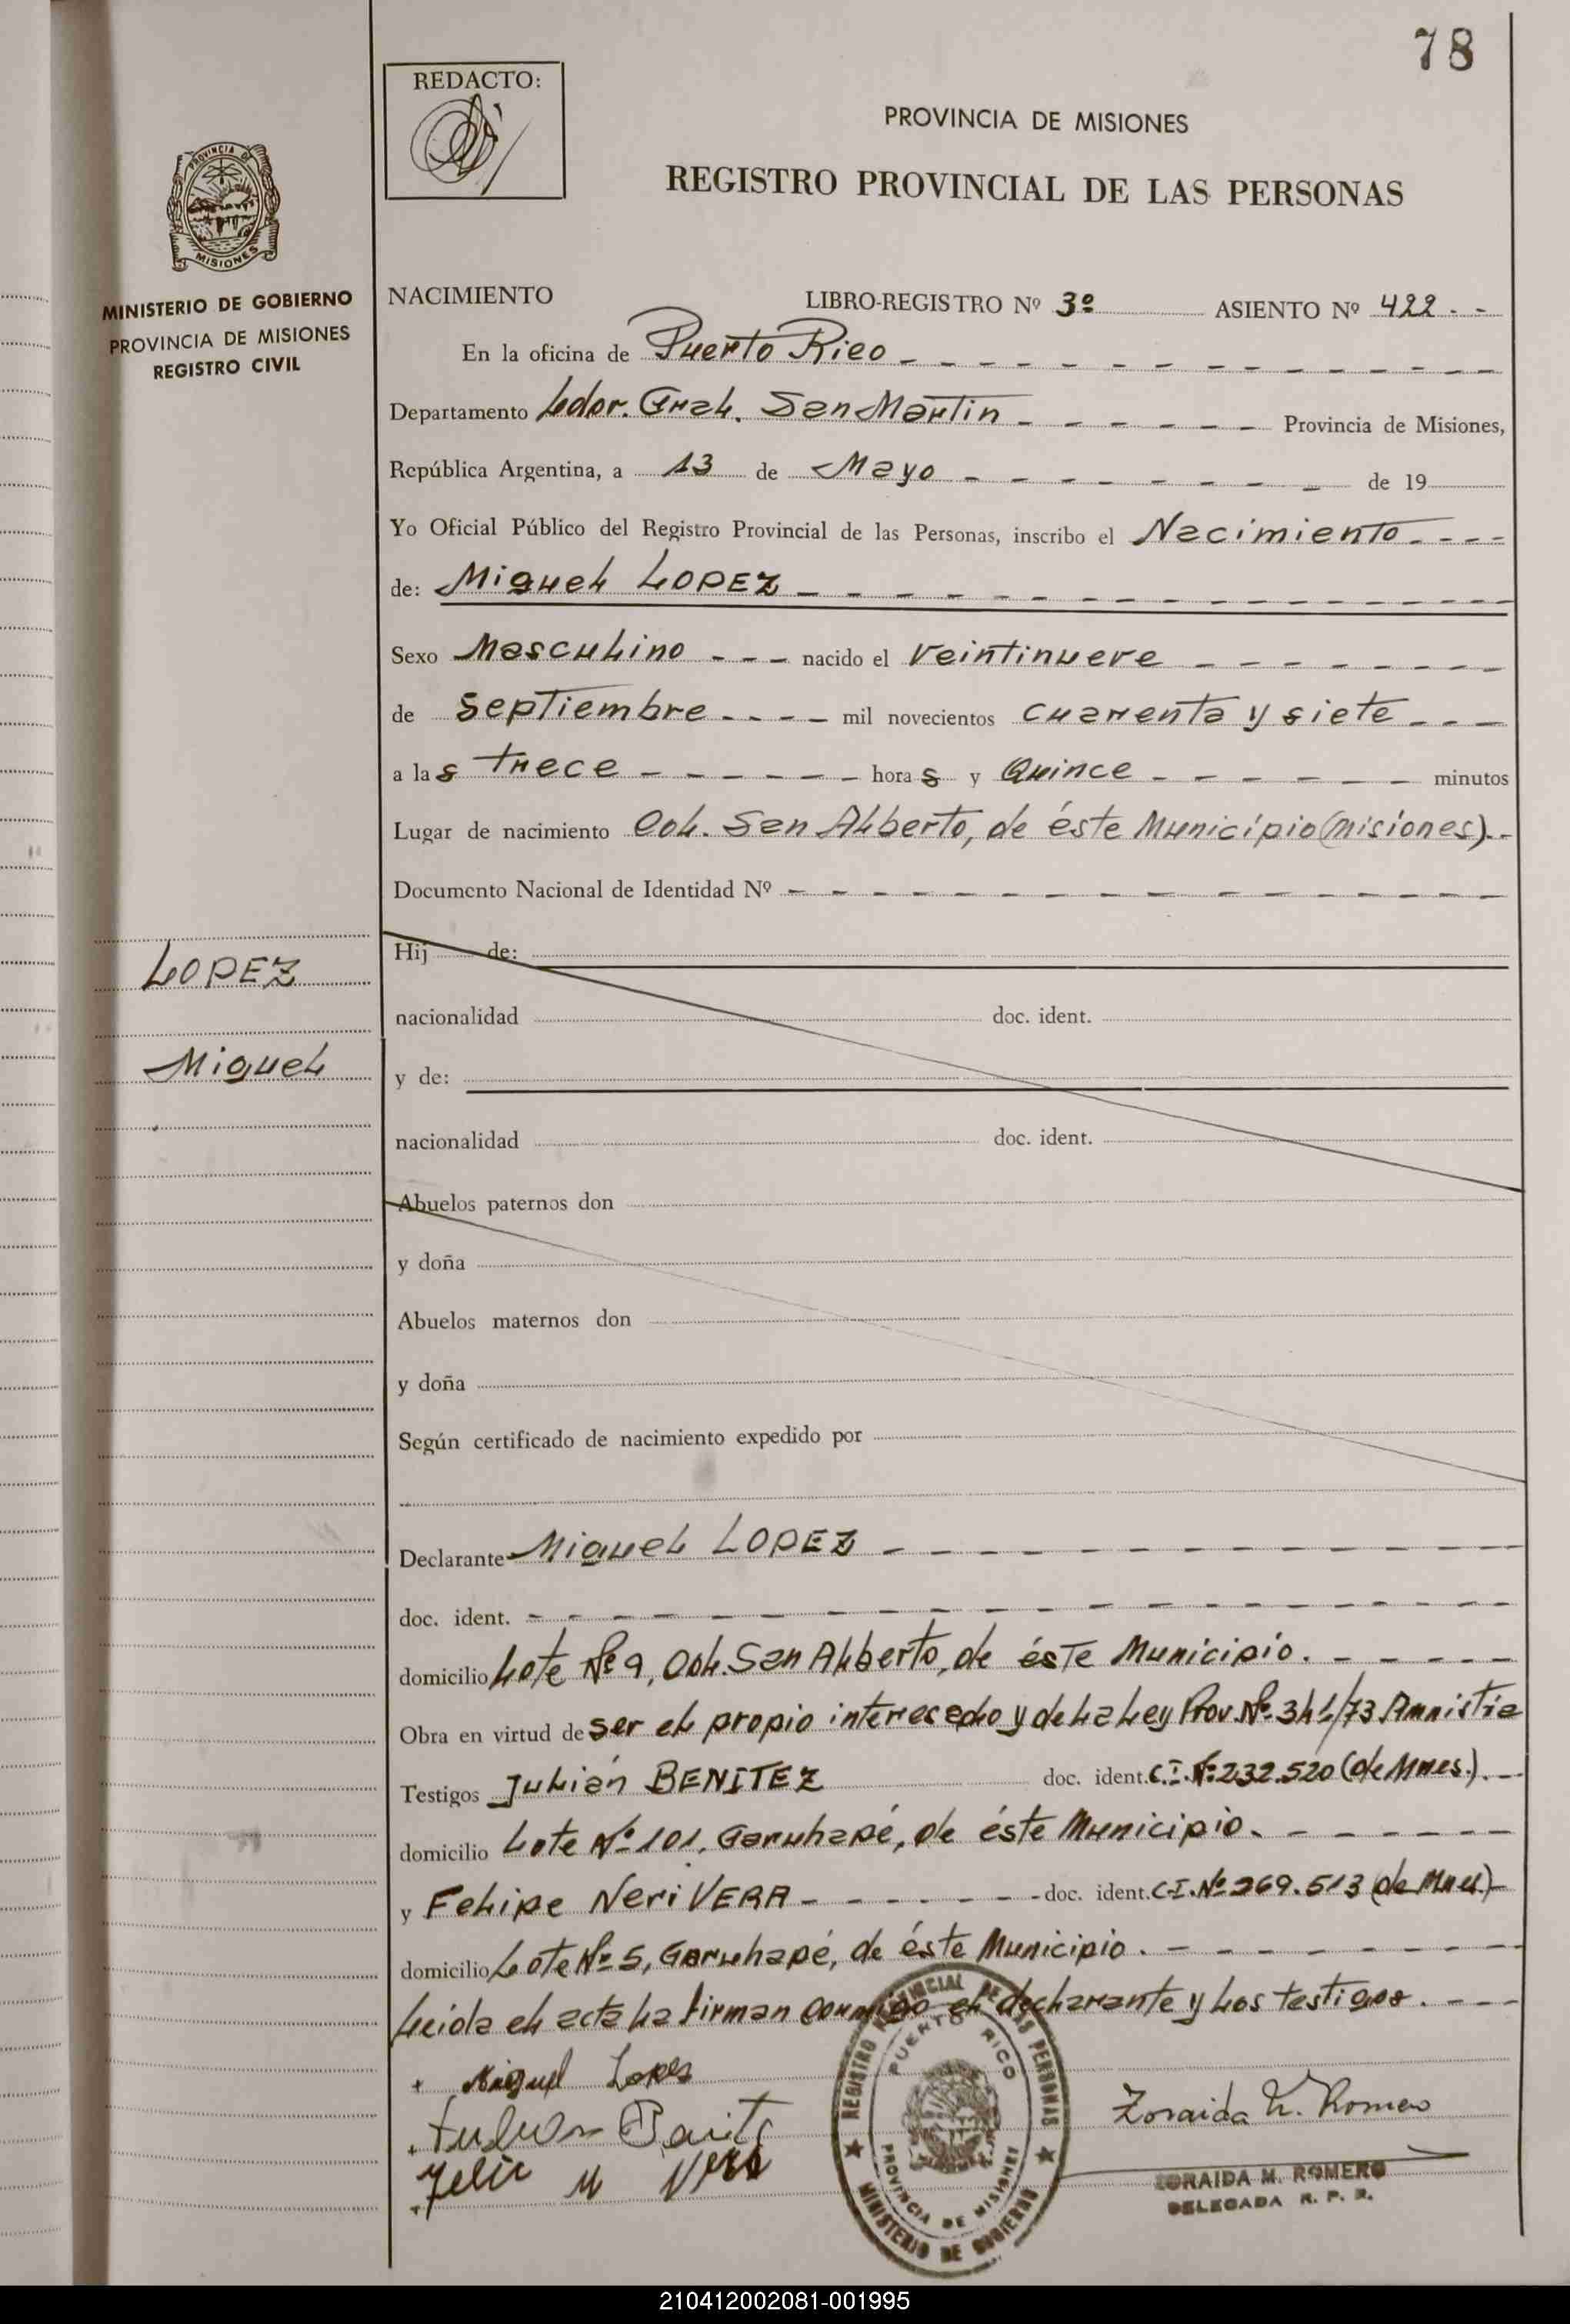 78
REDACTO:
PROVINCIA DE MISIONES
REGISTRO PROVINCIAL DE LAS PERSONAS
PROVINCIA DE
MISIONES
MINISTERIO DE GOBIERNO
PROVINCIA DE MISIONES
REGISTRO CIVIL
NACIMIENTO LIBRO-REGISTRO Nº 3º ASIENTO Nº 422 - -
En la oficina de Puerto Rico
Departamento Ldor. Gral. San Martin Provincia de Misiones,
República Argentina, a 13 de Mayo de 19
Yo Oficial Público del Registro Provincial de las Personas, inscribo el Nacimiento
de: Miguel LOPEZ
Sexo Masculino nacido el veintinueve
de septiembre mil novecientos cuarenta y siete
a las trece horas y Quince minutos
Lugar de nacimiento Col. San Alberto, de éste Municipio (Misiones).-
Documento Nacional de Identidad Nº
Hij de:
LOPEZ
nacionalidad doc. ident.
Miguel
y de:
nacionalidad doc. ident.
Abuelos paternos don
y doña
Abuelos maternos don
y doña
Según certificado de nacimiento expedido por
Declarante Miguel LOPEZ
doc. ident.
domicilio Lote Nº 9, Col. San Alberto, de éste Municipio.
Obra en virtud de ser el propio interesado y de la Ley Prov. Nº. 341/73 Amnistia
Testigos Julián BENITEZ doc. ident. C.I. Nº 232.520 (de Mnes.).
domicilio Lote Nº 101, Garuhapé, de éste Municipio.
y Felipe Neri VERA doc. ident. C.I. Nº 269.513 (de Mnes)
domicilio Lote Nº 5, Garuhapé, de éste Municipio.
Leida el acta la firman conmigo el declarante y los testigos.
Miguel Lopes
Zoraida M. Romero
ZORAIDA M. ROMERO
DELEGADA R. P. P.
REGISTRO PROVINCIAL DE LAS PERSONAS
PUERTO RICO
PROVINCIA DE MISIONES
MINISTERIO DE GOBIERNO
210412002081-001995